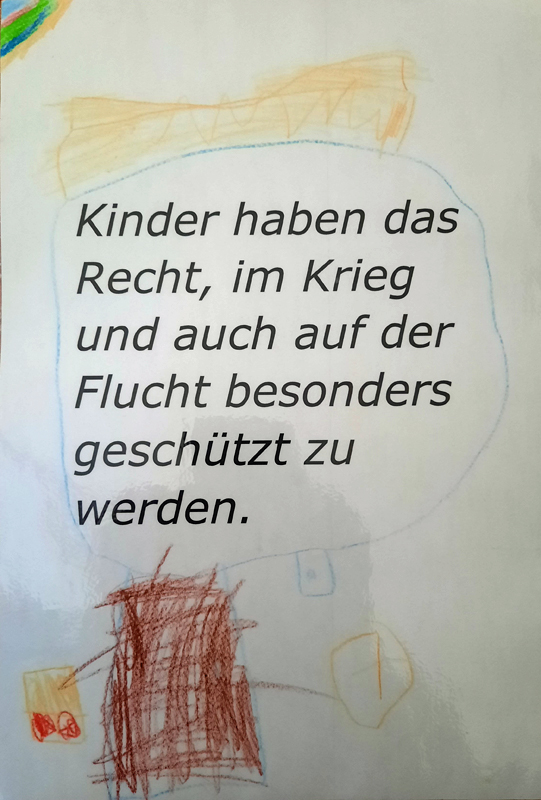 Kinder haben das
Recht, im Krieg
und auch auf der
Flucht besonders
geschützt zu
werden.